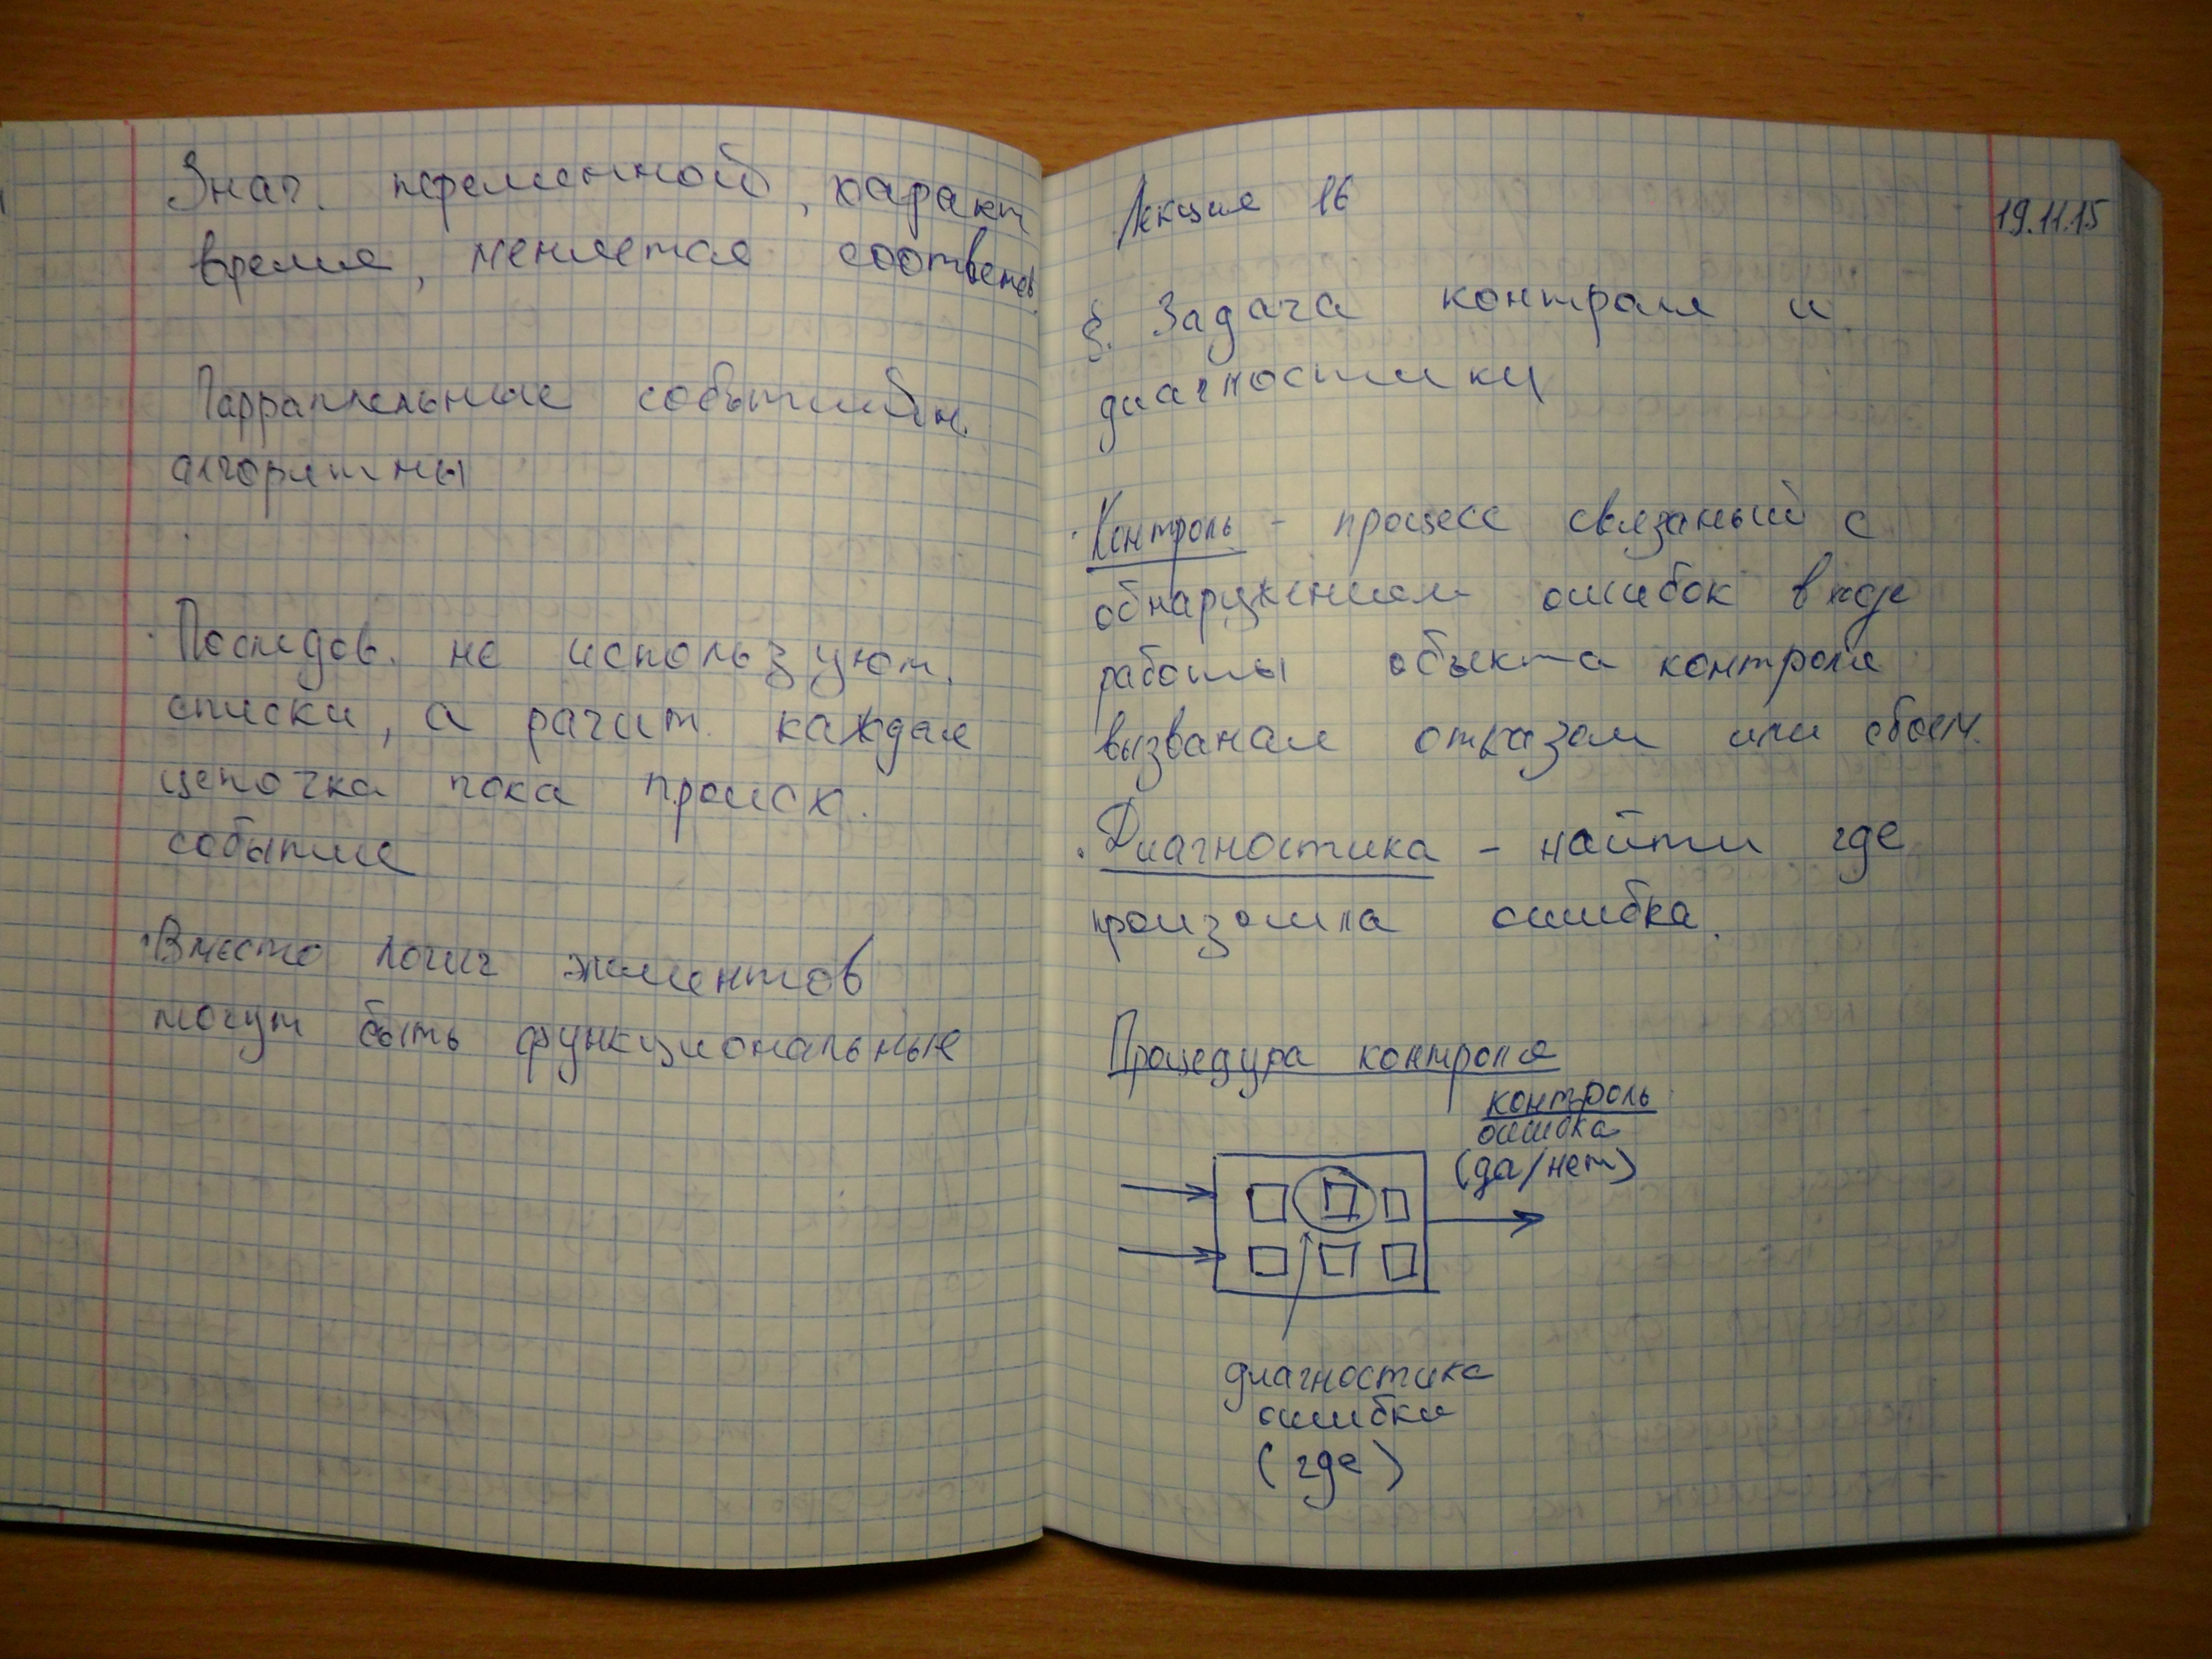 Знач. переменной, характ
время, меняется соответств.
Парраллельные событийн.
алгоритмы
Последов. не используют.
списки, а расчит. каждая
цепочка пока происх.
событие
Вместо логич элементов
могут быть функциональные
Лекция 16
19.11.15
§. Задача контроля и
диагностики
Контроль - процесс связаный с
обнаружением ошибок в ходе
работы объекта контроля
вызваная отказом или сбоем.
Диагностика - найти где
произошла ошибка.
Процедура контроля
контроль
ошибка
(да/нет)
диагностика
ошибки
(где)